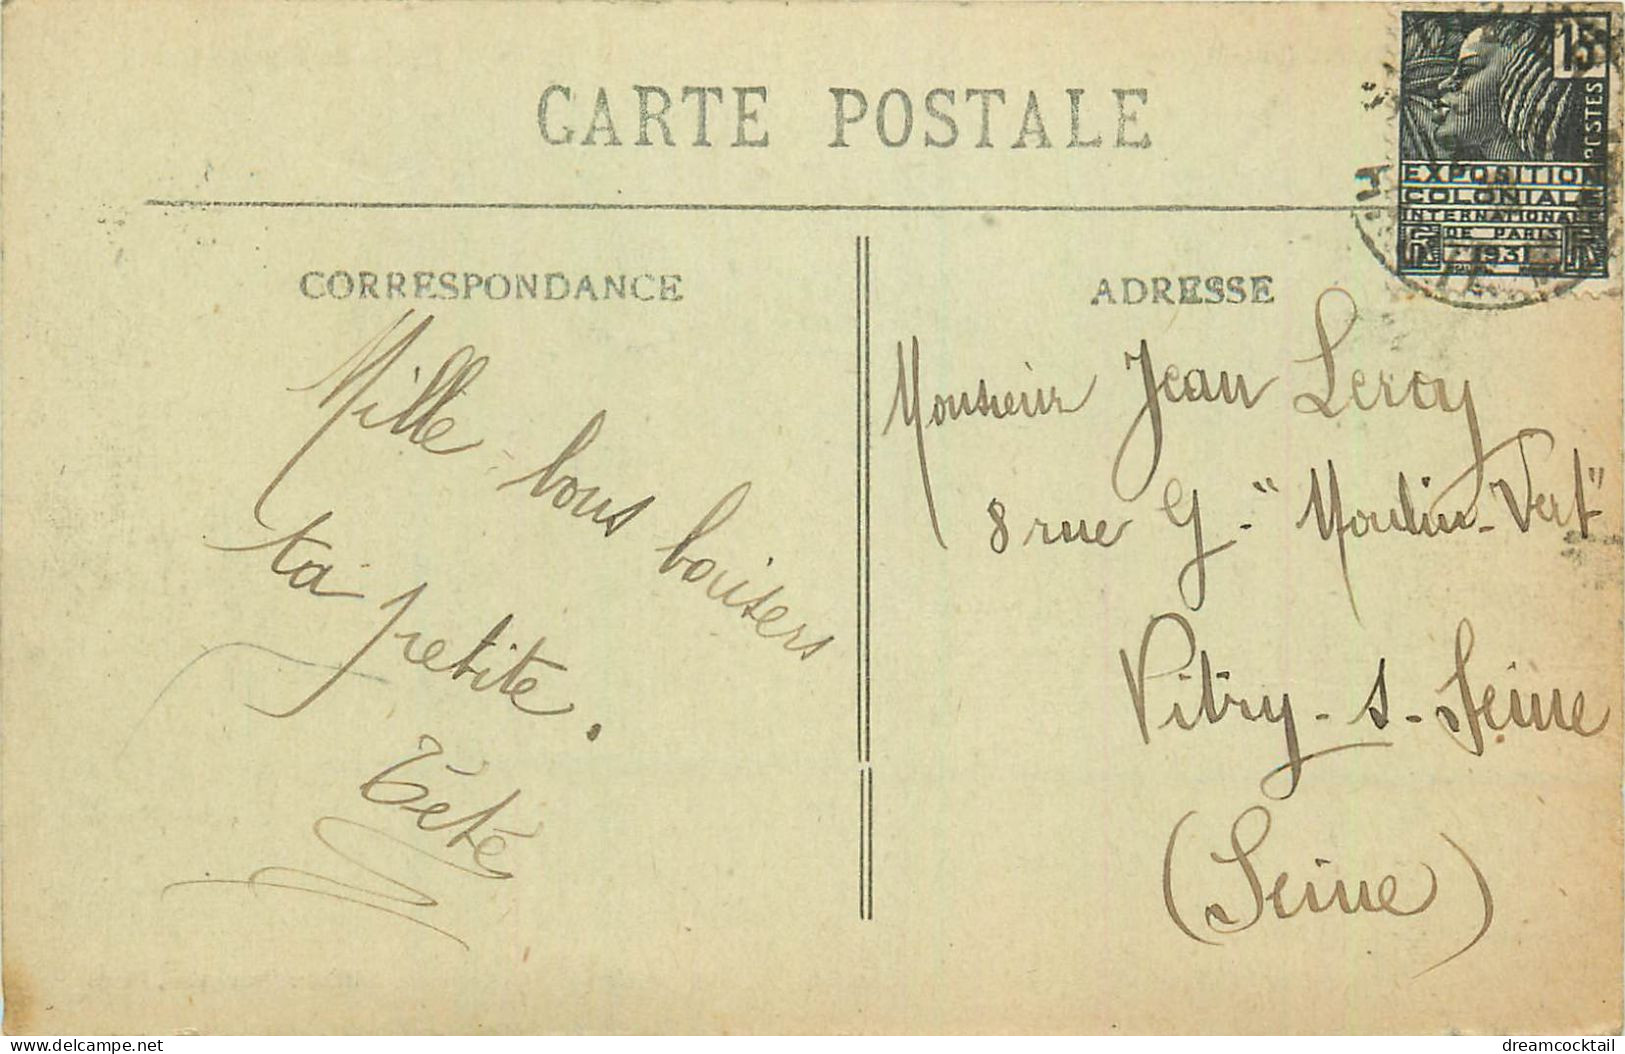 CARTE POSTALE
15
POSTES
EXPOSITION
COLONIALE
INTERNATIONALE
DE PARIS
1931
CORRESPONDANCE
ADRESSE
Mille bons baisers
ta petite.
Tété
Monsieur Jean Leroy
8 rue G. "Moulin-Vert"
Vitry-s-Seine
(Seine)
delcampe.net
dreamcocktail